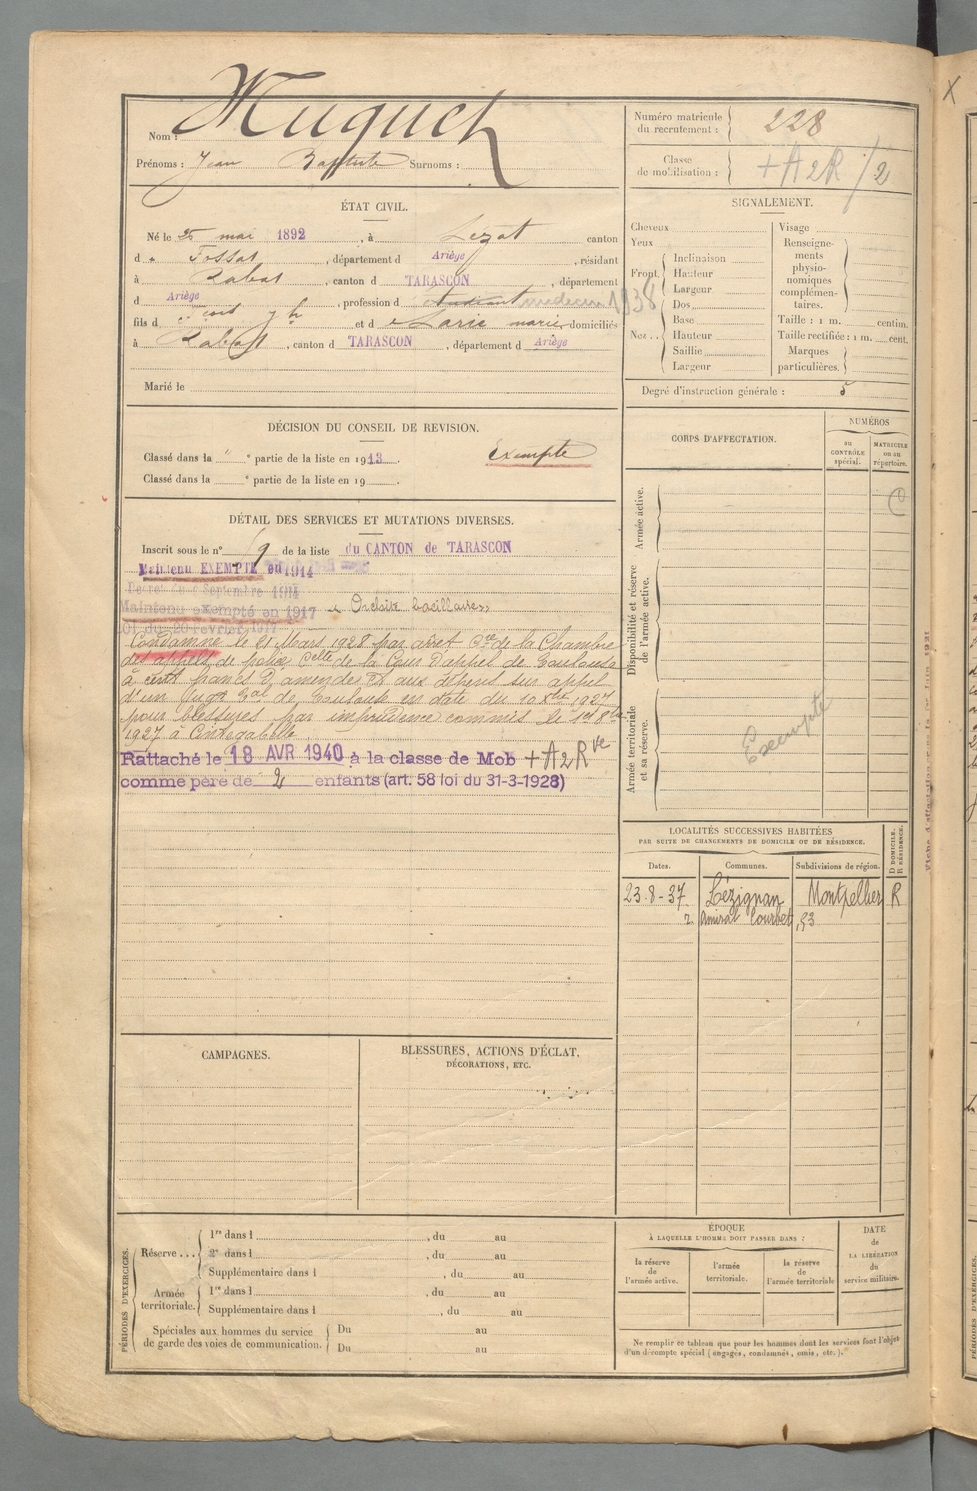 Nom : Muquet
Prénoms : Jean Baptiste Surnoms :
ÉTAT CIVIL.
Né le 25 mai 1892, à Lezat canton
d u Fossat, département d Ariège, résidant
à Rabat, canton d TARASCON, département
d Ariège, profession d étudiant medecin 1938
fils d et d e marie, domiciliés
à Rabat, canton d TARASCON, département d Ariège
Marié le
DÉCISION DU CONSEIL DE REVISION.
Classé dans la " e partie de la liste en 1913. Exempté
Classé dans la e partie de la liste en 19
DÉTAIL DES SERVICES ET MUTATIONS DIVERSES.
Inscrit sous le n° 9 de la liste du CANTON de TARASCON
Maintenu EXEMPTÉ en 1914
Décret du Septembre 1914
Maintenu exempté en 1917 « Orchite bacillaire »
Loi du 20 février 1917
Condamné le 21 Mars 1928 par arrêt de la Chambre
des appels de police Celle de la Cour d'appel de Toulouse
à cent francs d'amende et aux dépens sur appel
d'un Jugt de Toulouse en date du 10 1927
pour blessures par imprudence commis le 1er 8bre
1927 à Cintegabelle
Rattaché le 18 AVR 1940 à la classe de Mob + A2R
comme père de 2 enfants (art. 58 loi du 31-3-1928)
CAMPAGNES.
BLESSURES, ACTIONS D'ÉCLAT,
DÉCORATIONS, ETC.
PÉRIODES D'EXERCICES.
Réserve ...
1re dans l , du au
2e dans l , du au
Supplémentaire dans l , du au
Armée
territoriale.
1re dans l , du au
Supplémentaire dans l , du au
Spéciales aux hommes du service
de garde des voies de communication.
Du au
Du au
Numéro matricule
du recrutement : 228
Classe
de mobilisation : + A2R / 2
SIGNALEMENT.
Cheveux
Yeux
Front.
Inclinaison
Hauteur
Largeur
Nez ..
Dos
Base
Hauteur
Saillie
Largeur
Visage
Renseigne-
ments
physio-
nomiques
complémen-
taires.
Taille : 1 m. centim.
Taille rectifiée : 1 m. cent.
Marques
particulières.
Degré d'instruction générale : 5
CORPS D'AFFECTATION.
NUMÉROS
au
CONTRÔLE
spécial.
MATRICULE
ou au
répertoire.
Armée active.
Disponibilité et réserve
de l'armée active.
Armée territoriale
et sa réserve.
Exempté
LOCALITÉS SUCCESSIVES HABITÉES
PAR SUITE DE CHANGEMENTS DE DOMICILE OU DE RÉSIDENCE.
D DOMICILE.
R RÉSIDENCE.
Dates. Communes. Subdivisions de région.
23-8-37 Lézignan Montpellier R
r. Amiral Courbet, 53
ÉPOQUE
À LAQUELLE L'HOMME DOIT PASSER DANS :
la réserve
de
l'armée active.
l'armée
territoriale.
la réserve
de
l'armée territoriale
DATE
de
LA LIBÉRATION
du
service militaire.
Ne remplir ce tableau que pour les hommes dont les services font l'objet
d'un décompte spécial (engagés, condamnés, omis, etc.).
X
PÉRIODES D'EXERCICES.